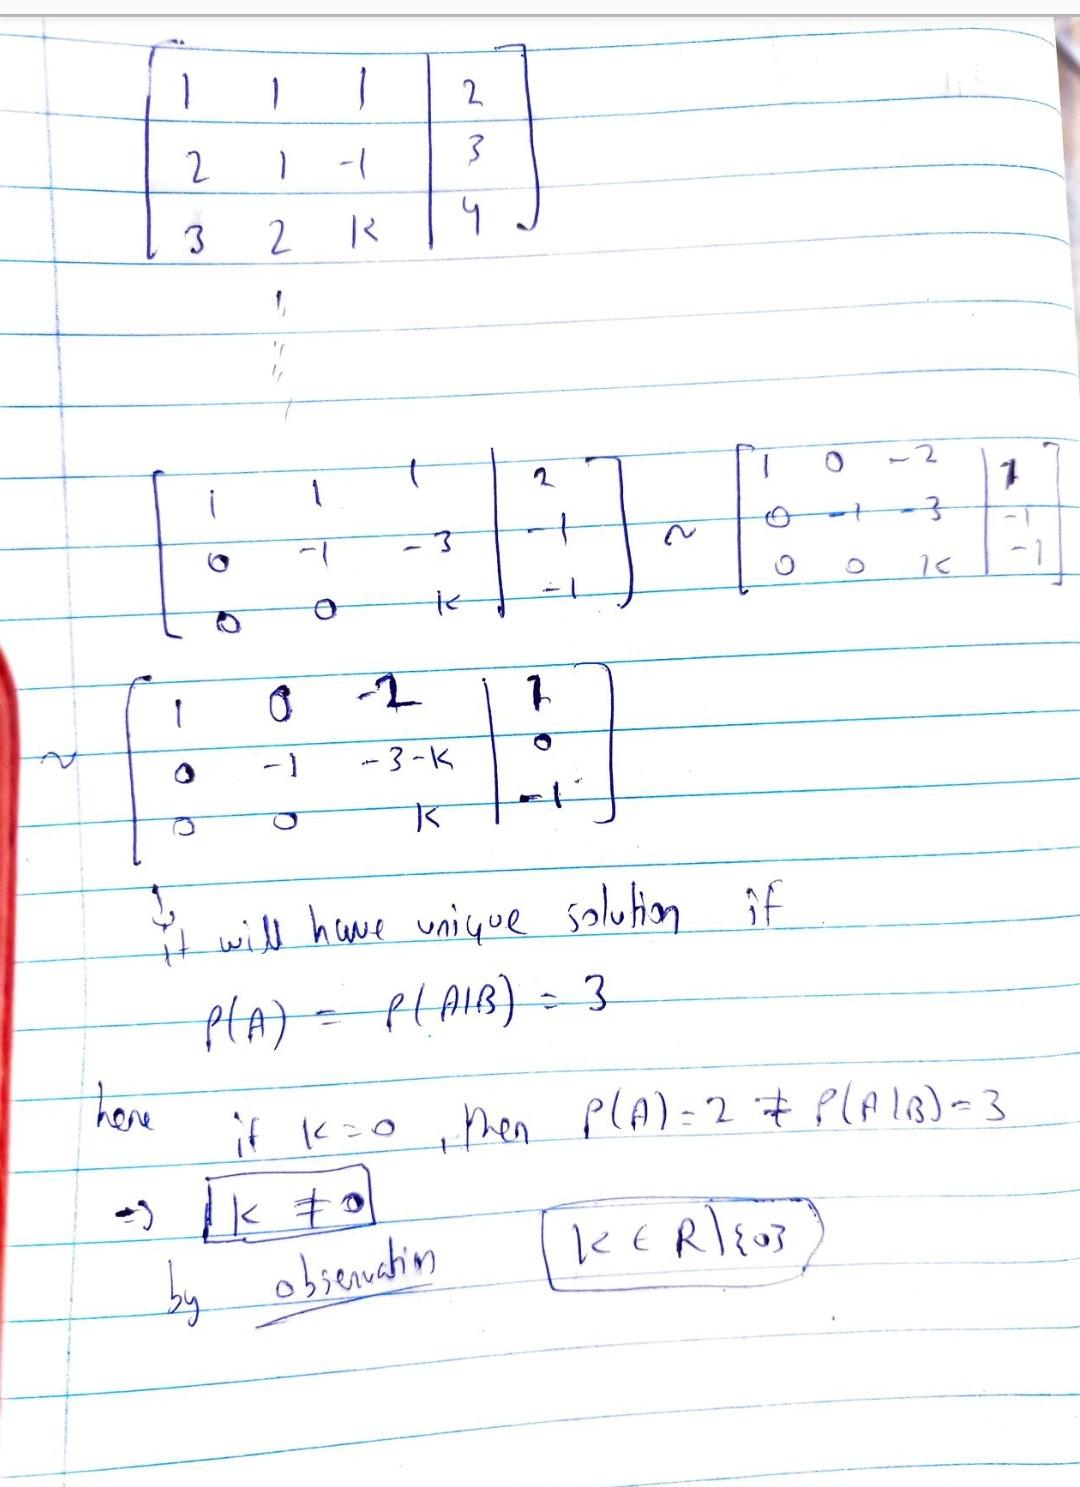 1 1 1 | 2
2 1 -1 | 3
3 2 k | 4
1 1 1 | 2
0 -1 -3 | -1
0 0 k | -1
~
1 0 -2 | 1
0 -1 -3 | -1
0 0 k | -1
~
1 0 -2 | 1
0 -1 -3-k | 0
0 0 k | -1
it will have unique solution if
P(A) = P(A|B) = 3
here if k=0, then P(A)=2 ≠ P(A|B)=3
⇒ k ≠ 0
k ∈ R\{0}
by observation